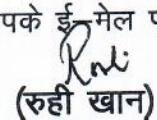 पके ई-मेल
(रुही खान)